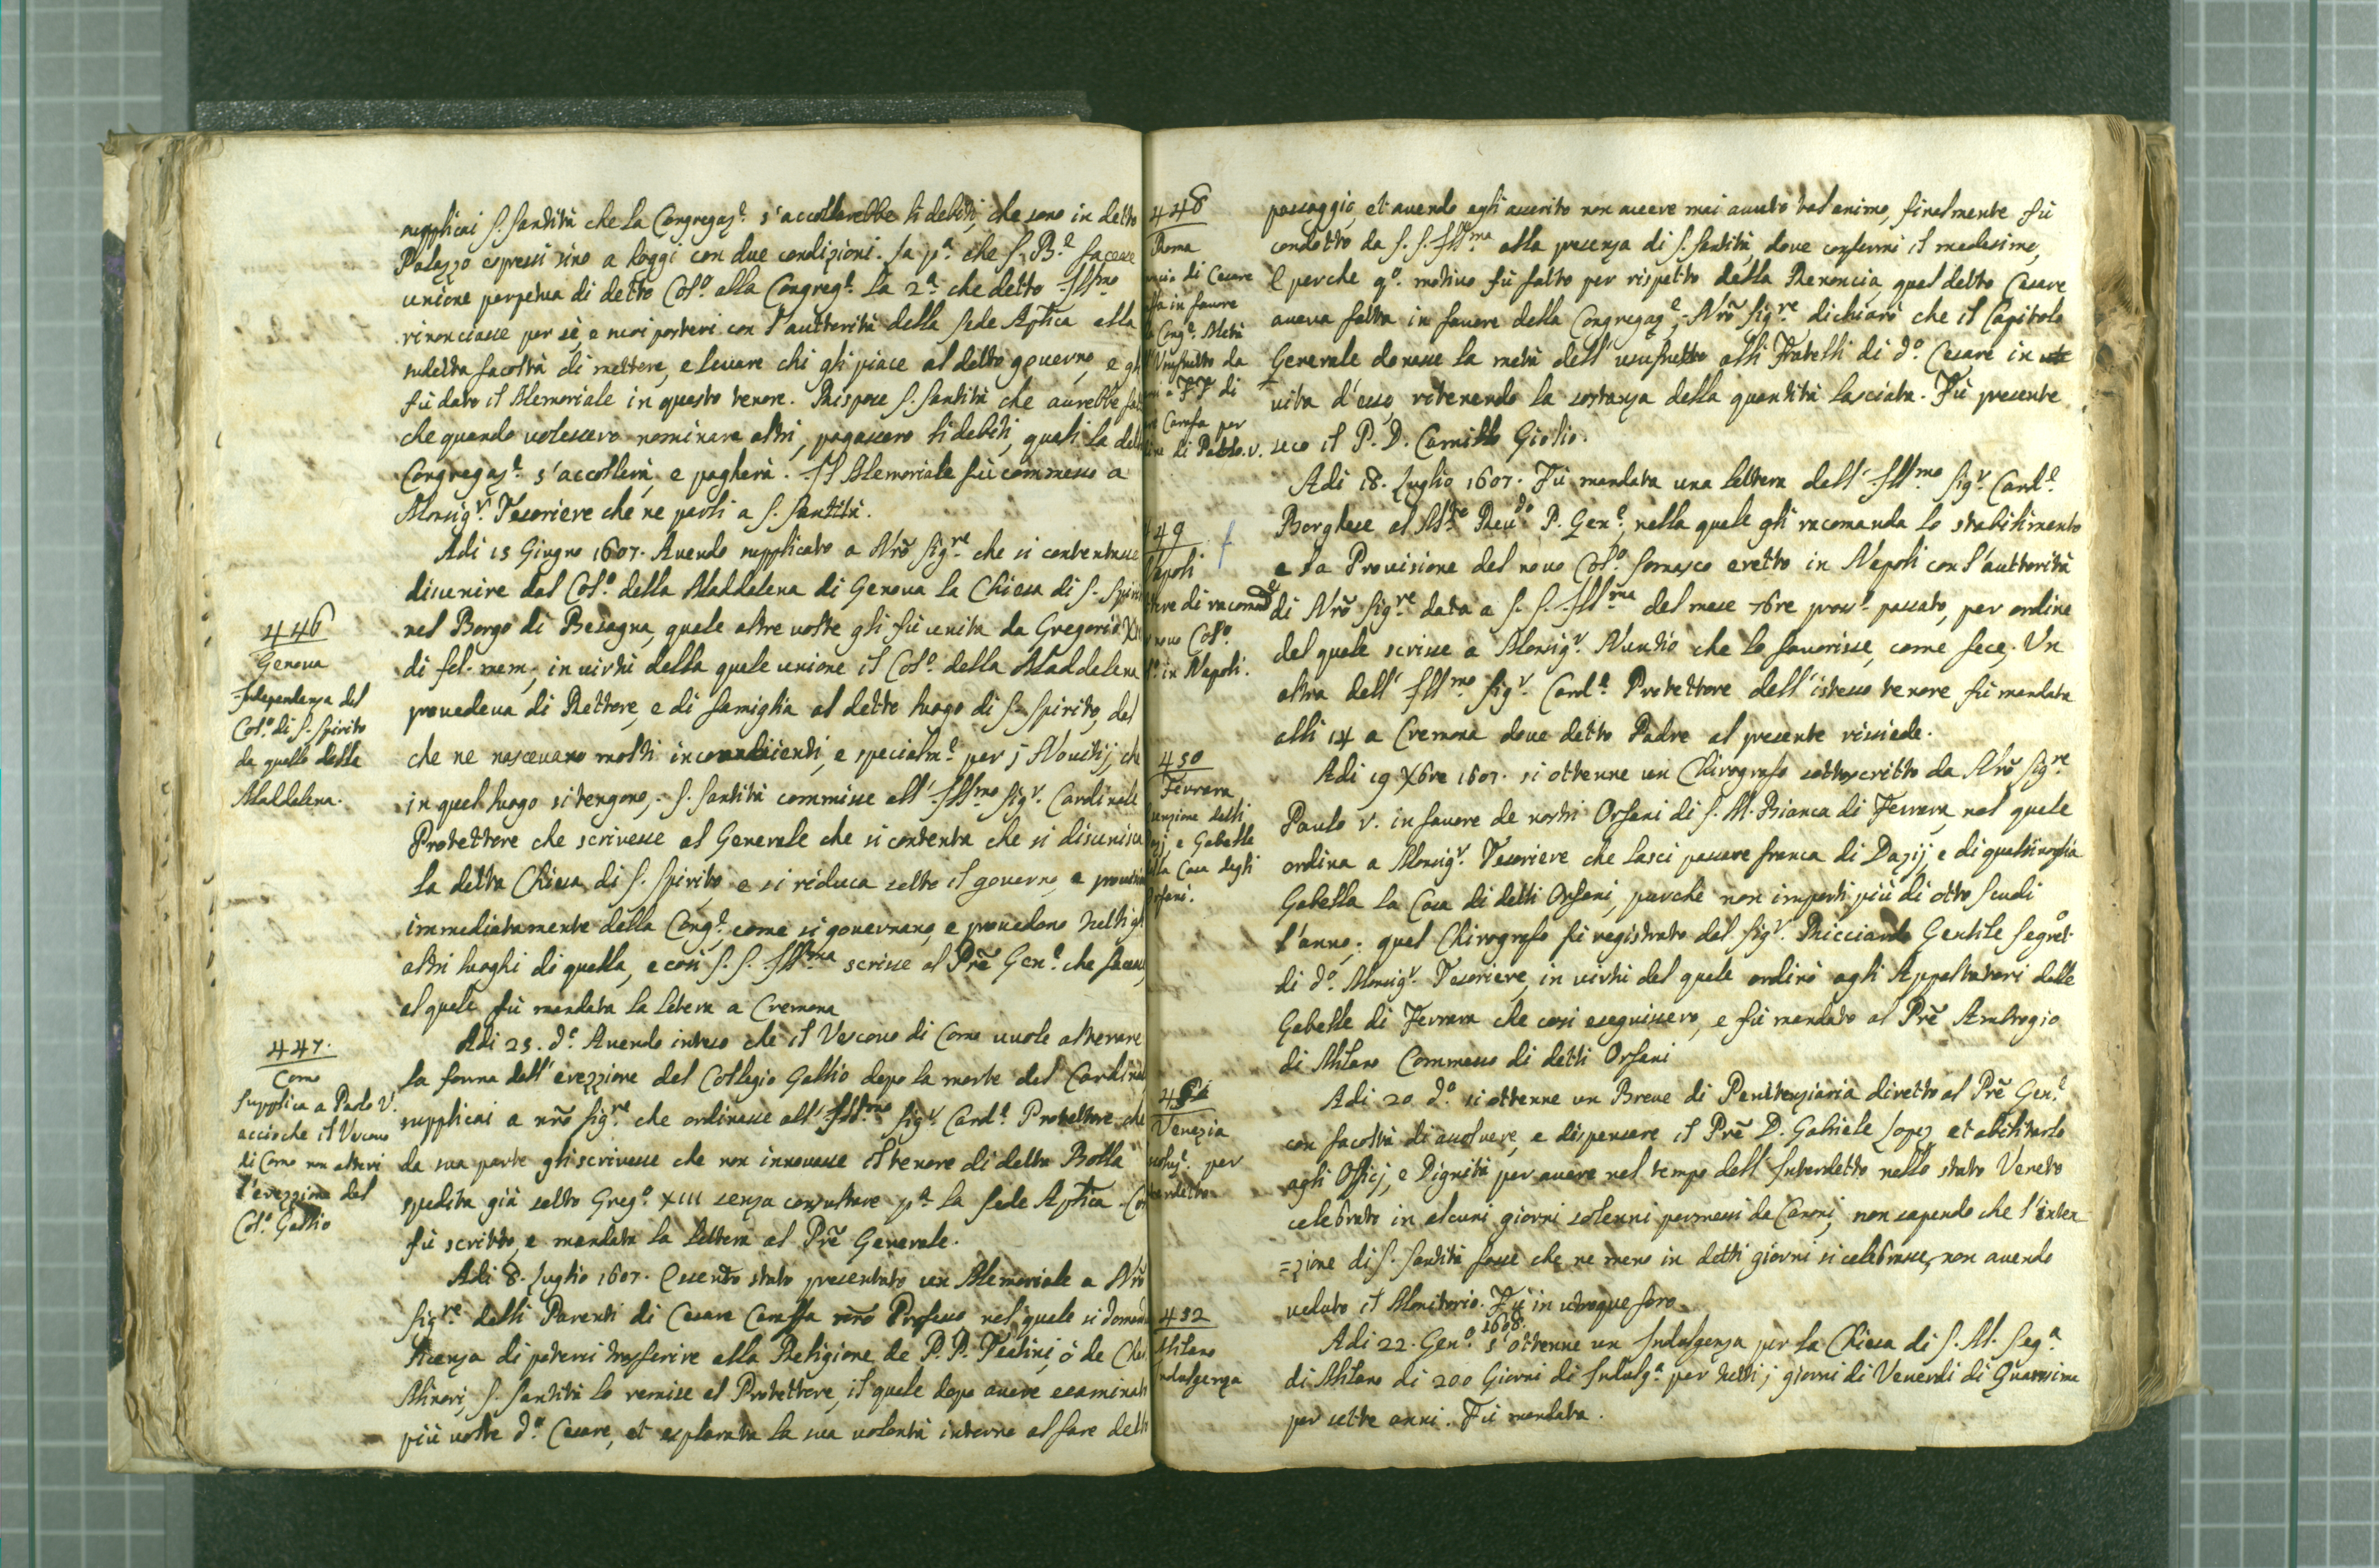 supplicai S. Santità che la Congregaz.e s'accollarebbe li debiti, che sono in detto
Palazzo espressi sino a hoggi con due condizioni. La p.a che S. B.e facesse
unione perpetua di detto Col.o alla Congreg.e La 2.a che detto Ill.mo
rinonciasse per sè, e suoi posteri con l'auttorità della Sede Aplica alla
sudetta facoltà di mettere, e levare chi gli piace al detto governo, e gli
fù dato il Memoriale in questo tenore. Rispose S. Santità che aurebbe
che quando volessero nominare altri, pagassero li debiti, quali la
Congregaz.e s'accollerà, e pagherà. Il Memoriale fù commesso a
Monsig.r Tesoriere che ne parli a S. Santità.
446
Genova
Independenza del
Col.o di S. Spirito
da quello della
Maddalena.
Adi 15 Giugno 1607. Avendo supplicato a Nrõ Sig.re che si contentasse
disunire dal Col.o della Maddalena di Genova la Chiesa di S. Spirito
nel Borgo di Besagna, quale altre volte gli fù unita da Gregorio
di fel. mem., in virtù della quale unione il Col.o della Maddalena
provedeva di Rettore, e di famiglia al detto luogo di S. Spirito, dal
che ne nascevano molti inconvenienti, e specialm.e per j Novitij, che
in quel luogo si tengono, S. Santità commise all'Ill.mo Sig.r Cardinale
Protettore che scrivesse al Generale che si contenta che si disunisca
la detta Chiesa di S. Spirito e si riduca sotto il governo, e
immediatamente della Cong.e come si governano, e provedono tutti gl
altri luoghi di quella, e così S. S. Ill.ma scrisse al Prẽ Gen.e che facesse,
al quale fù mandata la letera a Cremona
447.
Como
Supplica a Paolo V.
acciochè il Vescovo
di Como non alteri
l'erezzione del
Col.o Gallio
Adi 25. d.o Avendo inteso che il Vescovo di Como vuole alterare
la forma dell'erezzione del Collegio Gallio dopo la morte del Cardinal
supplicai a nrõ Sig.re che ordinasse all'Ill.mo Sig.r Card.e Protettore che
da sua parte gli scrivesse che non innovasse il tenore di detta Bolla
spedita già sotto Greg.o XIII senza consultare p.a la Sede Aplica.
fù scritto, e mandata la lettera al Prẽ Generale.
Adi 8. Luglio 1607. Essendo stato presentato un Memoriale a Nrõ
Sig.re delli Parenti di Cesare Caraffa nrõ Professo nel quale si
licenza di potersi trasferire alla Religione de P. P. Teatini, ò de
Minori, S. Santità lo remise al Protettore, il quale dopo avere
più volte d.o Cesare, et esplorata la sua volontà interno al fare
448
Roma
di Cesare
in favore
Cong.e Metà
Usufrutto da
FF di
Carafa per
di Paolo V.
passaggio, et avendo egli asserito non avere mai avuto tal animo, finalmente fù
condotto da S. S. Ill.ma alla presenza di S. Santità, dove confermò il medesimo,
E perche q.o motivo fù fatto per rispetto della Renoncia, quel detto Cesare
aveva fatta in favore della Congregaz.e, Nrõ Sig.re dichiarò che il Capitolo
Generale donasse la metà dell'usufrutto alli Fratelli di d.o Cesare in
vita d'esso, ritenendo la sostanza della quantità lasciata. Fù presente
seco il P. D. Camillo Giolio.
49
Napoli
di racomad.e
novo Col.o
in Napoli.
Adi 18. Luglio 1607. Fù mandata una lettera dell'Ill.mo Sig.r Card.e
Borghese al M.to Reu.do P. Gen.e, nella quale gli racomanda lo stabilimento
e la Provisione del novo Col.o Somasco eretto in Napoli con l'auttorità
di Nrõ Sig.re data a S. S. Ill.ma del mese 7bre pross.o passato, per ordine
del quale scrisse a Monsig.r Nuntio che lo favorisse, come fece. Un
altra dell'Ill.mo Sig.r Card.e Protettore dell'istesso tenore fù mandata
alli 14 a Cremona dove detto Padre al presente rissiede.
450
Ferrara
delli
e Gabelle
Casa degli
Orfani.
Adi 19 Xbre 1607. si ottenne un Chirografo sottoscritto da Nrõ Sig.re
Paulo V. in favore de nostri Orfani di S. M. Bianca di Ferrara, nel quale
ordina a Monsig.r Tesoriere che lasci passare franca di Dazij, e di qualsivoglia
Gabella la Casa di detti Orfani, purchè non importi più di otto Scudi
l'anno; qual Chirografo fù registrato dal Sig.r Ricciardo Gentile Segret.o
di d.o Monsig.r Tesoriere, in virtù del quale ordinò agli Appaltatori delle
Gabelle di Ferrara che così eseguissero, e fù mandato al Prẽ Ambrogio
di Milano Commesso di detti Orfani
Venezia
per
Adi 20 d.o si ottenne un Breve di Penitenziaria diretto al Prẽ Gen.e
con facoltà di assolvere, e dispensare il Prẽ D. Gabriele Lopez et abilitarlo
agli Officj, e Dignità per avere nel tempo dell'Interdetto nello stato Veneto
celebrato in alcuni giorni solenni permessi da Canoni, non sapendo che l'inten
=zione di S. Santità fosse che ne meno in detti giorni si celebrasse, non avendo
veduto il Monitorio. Fù in utroque foro.
452
Milano
Indulgenza
Adi 22. Gen.o 1608. s'ottenne un Indulgenza per la Chiesa di S. M. Seg.a
di Milano di 200 Giorni di Indulg.a per tutti j giorni di Venerdì di Quaresima
per sette anni. Fù mandata.